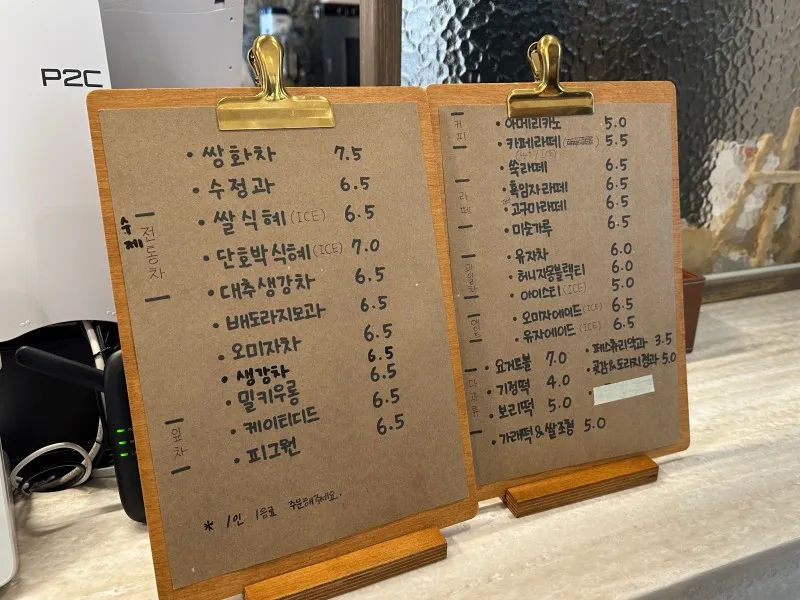 P2C
수제
전통차
• 쌍화차 7.5
• 수정과 6.5
• 쌀식혜 (ICE) 6.5
• 단호박식혜 (ICE) 7.0
• 대추생강차 6.5
• 배도라지모과 6.5
• 오미자차 6.5
• 생강차 6.5
• 밀키우롱 6.5
잎차
• 케이티디드 6.5
• 피그원 6.5
* 1인 1음료 주문해주세요.
커피
• 아메리카노 5.0
• 카페라떼 5.5
라떼
• 쑥라떼 6.5
• 흑임자라떼 6.5
• 고구마라떼 6.5
• 미숫가루 6.5
과일차
• 유자차 6.0
• 허니자몽블랙티 6.0
• 아이스티 (ICE) 5.0
• 오미자에이드 (ICE) 6.5
• 유자에이드 (ICE) 6.5
• 요거트볼 7.0
• 기정떡 4.0
• 보리떡 5.0
• 가래떡&쌀조청 5.0
• 페스츄리약과 3.5
• 곶감&도라지정과 5.0